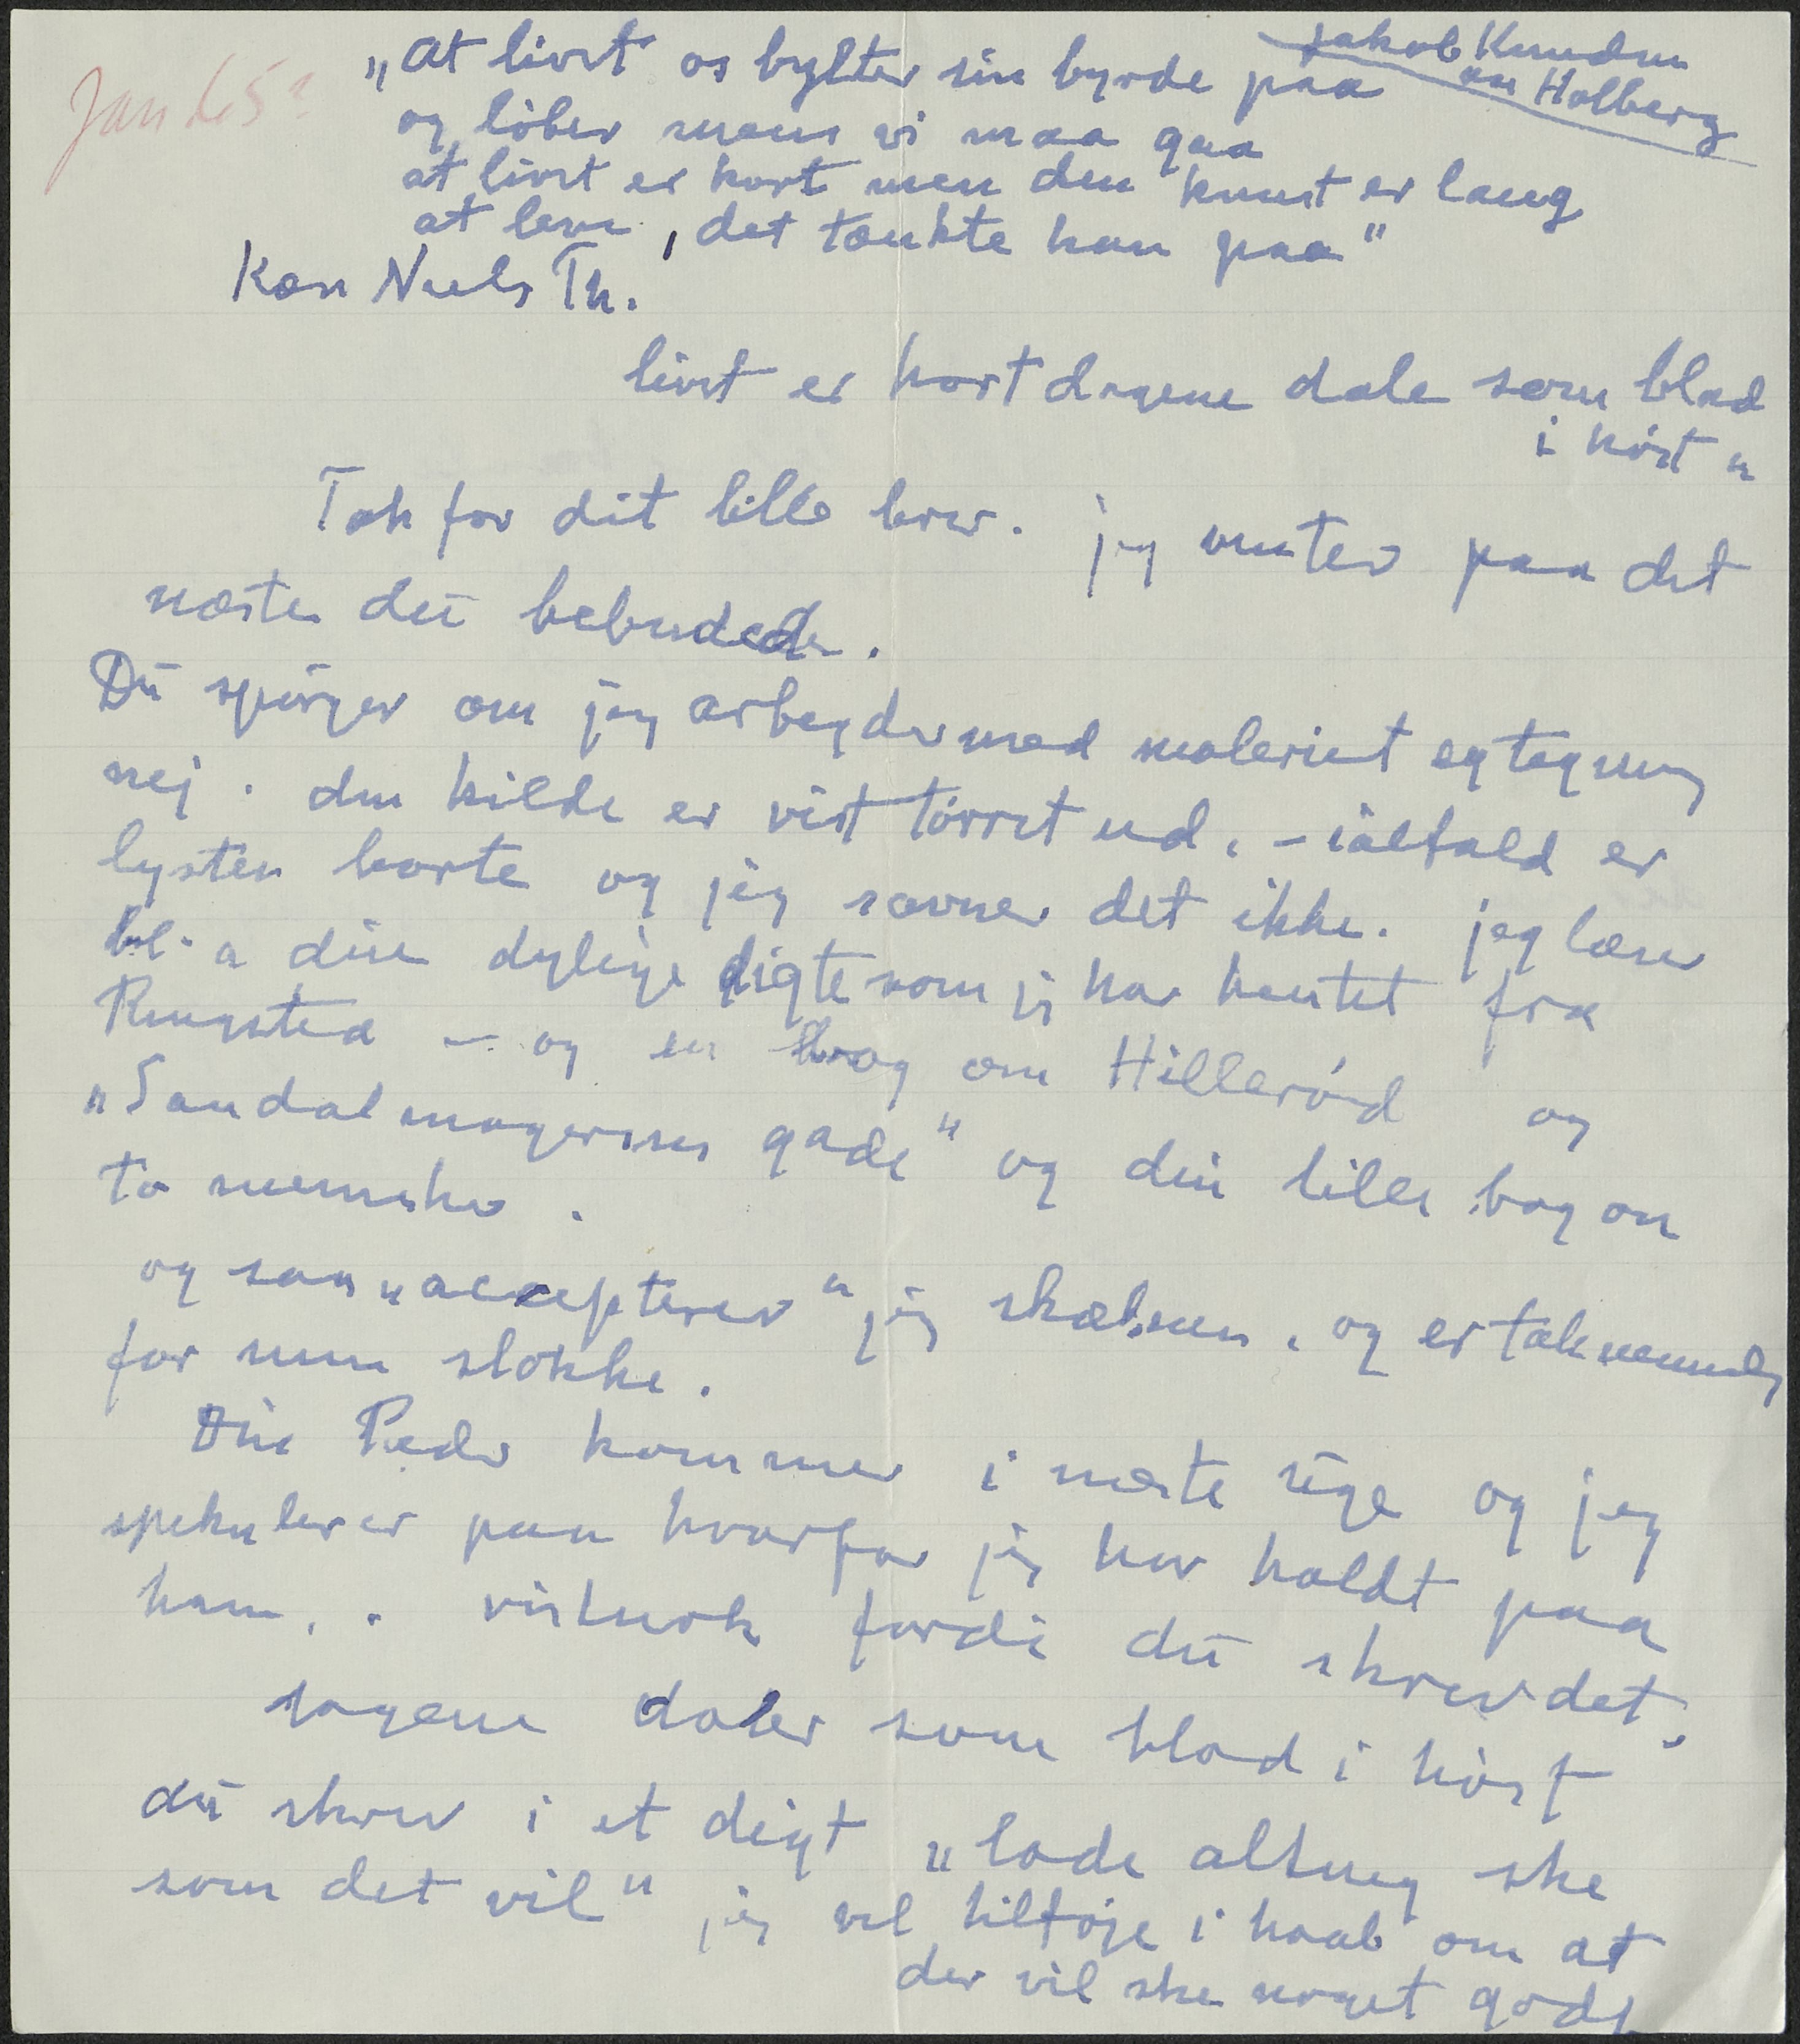 Jan 65?
"At livet os bylter sin byrde paa
Jakob Knudsen
om Holberg
og löber mens vi maa gaa
at livet er kort men den kunst er lang
at leve, det tænkte han paa"
Kære Niels Th.
livet er kort dagene dale som blad
i höst "
Tak for dit lille brev. jeg venter paa det
næste du bebudede.
Du spörger om jeg arbejder med maleriet og tegning
nej. den kilde er vist törret ud, - ialfald er
lysten borte og jeg savner det ikke. jeg læser
bl. a dine dejlige digte som jeg har hentet fra
Rungsted - og en bog om Hilleröd og
"Sandalmagernes gade" og din lille bog om
to mennesker.
og saa "accepterer" jeg skæbnen, og er taknemmelig
for mine stokke.
Din Peder kommer i næste uge og jeg
spekulerer paa hvorfor jeg har holdt paa
ham. . vistnok fordi du skrev det.
dagene daler som blad i höst
du skrev i et digt "lade alting ske
som det vil" jeg vil tilföje i haab om at
der vil ske noget godt